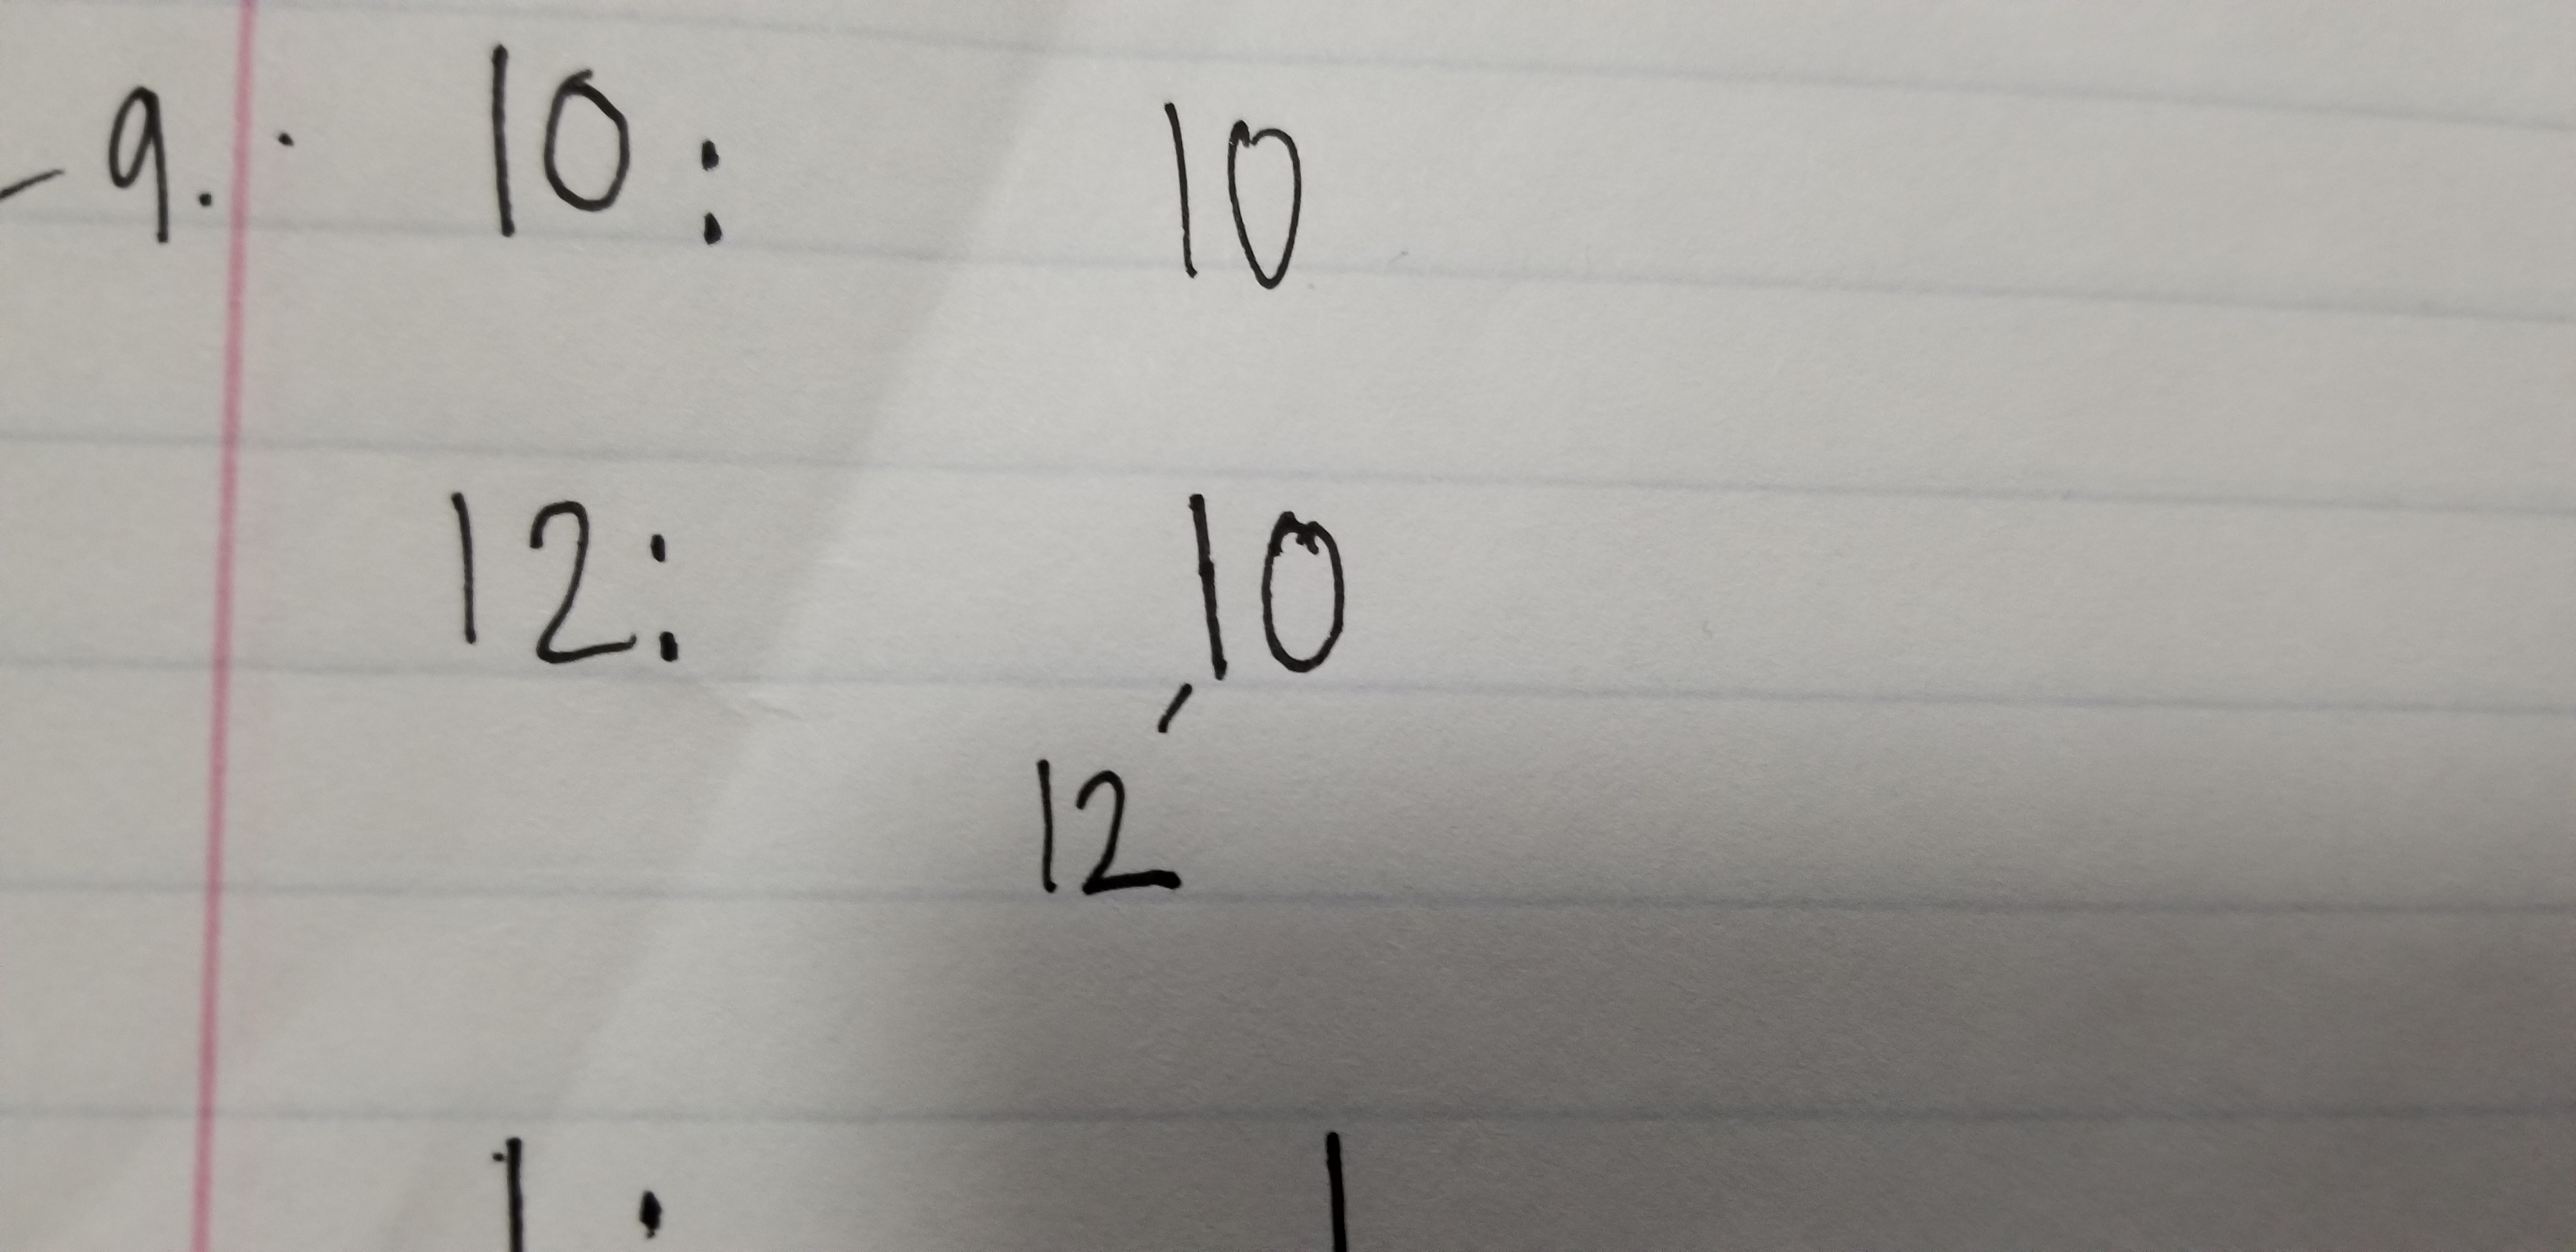 9. 10: 10
12: 10
12
1: 1